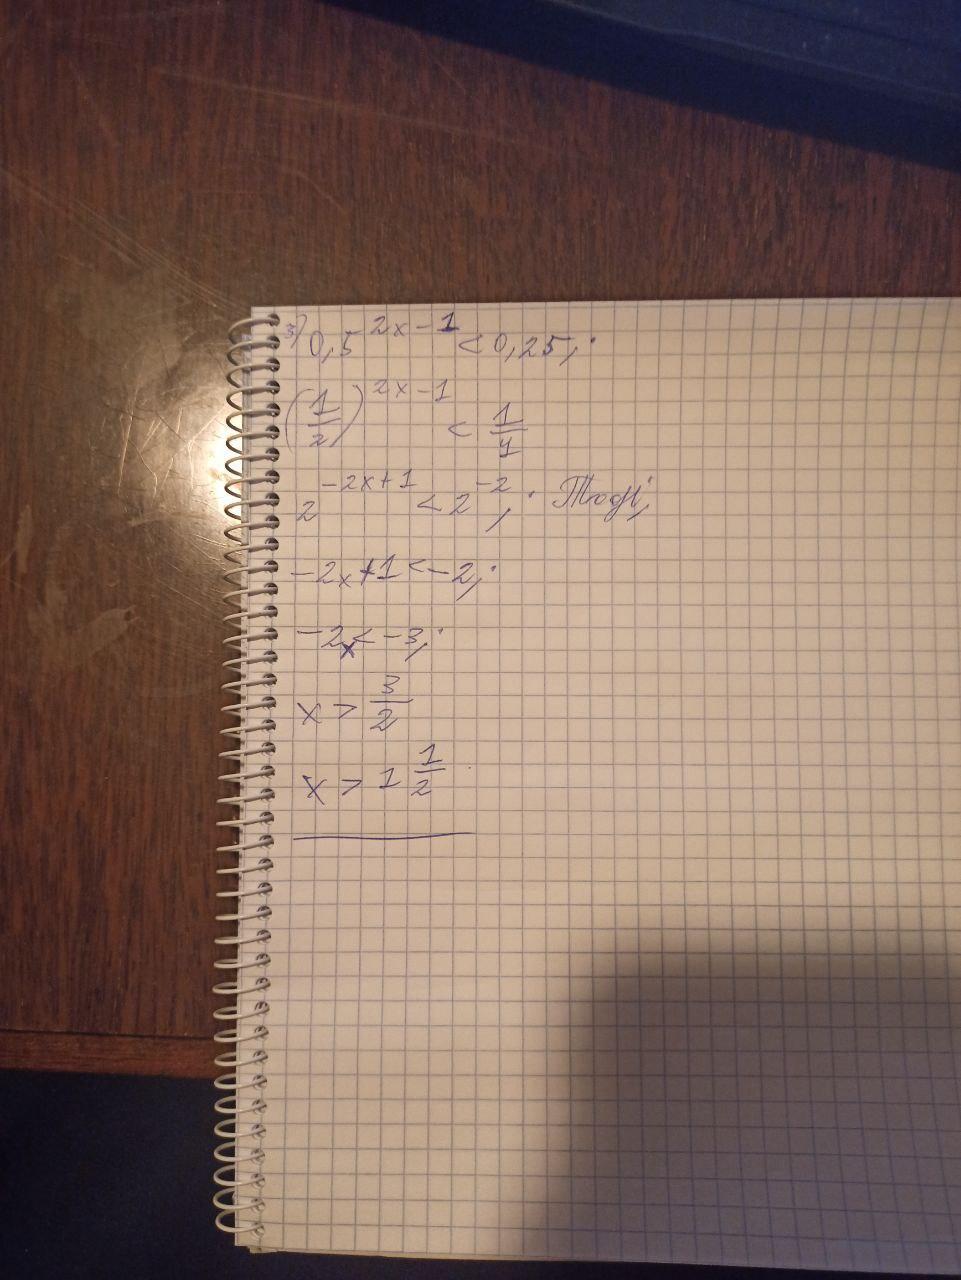 3) 0,5^{2x-1} < 0,25;
(1/2)^{2x-1} < 1/4
2^{-2x+1} < 2^{-2}; Тоді;
-2x+1 < -2;
-2x < -3;
x > 3/2
x > 1 1/2